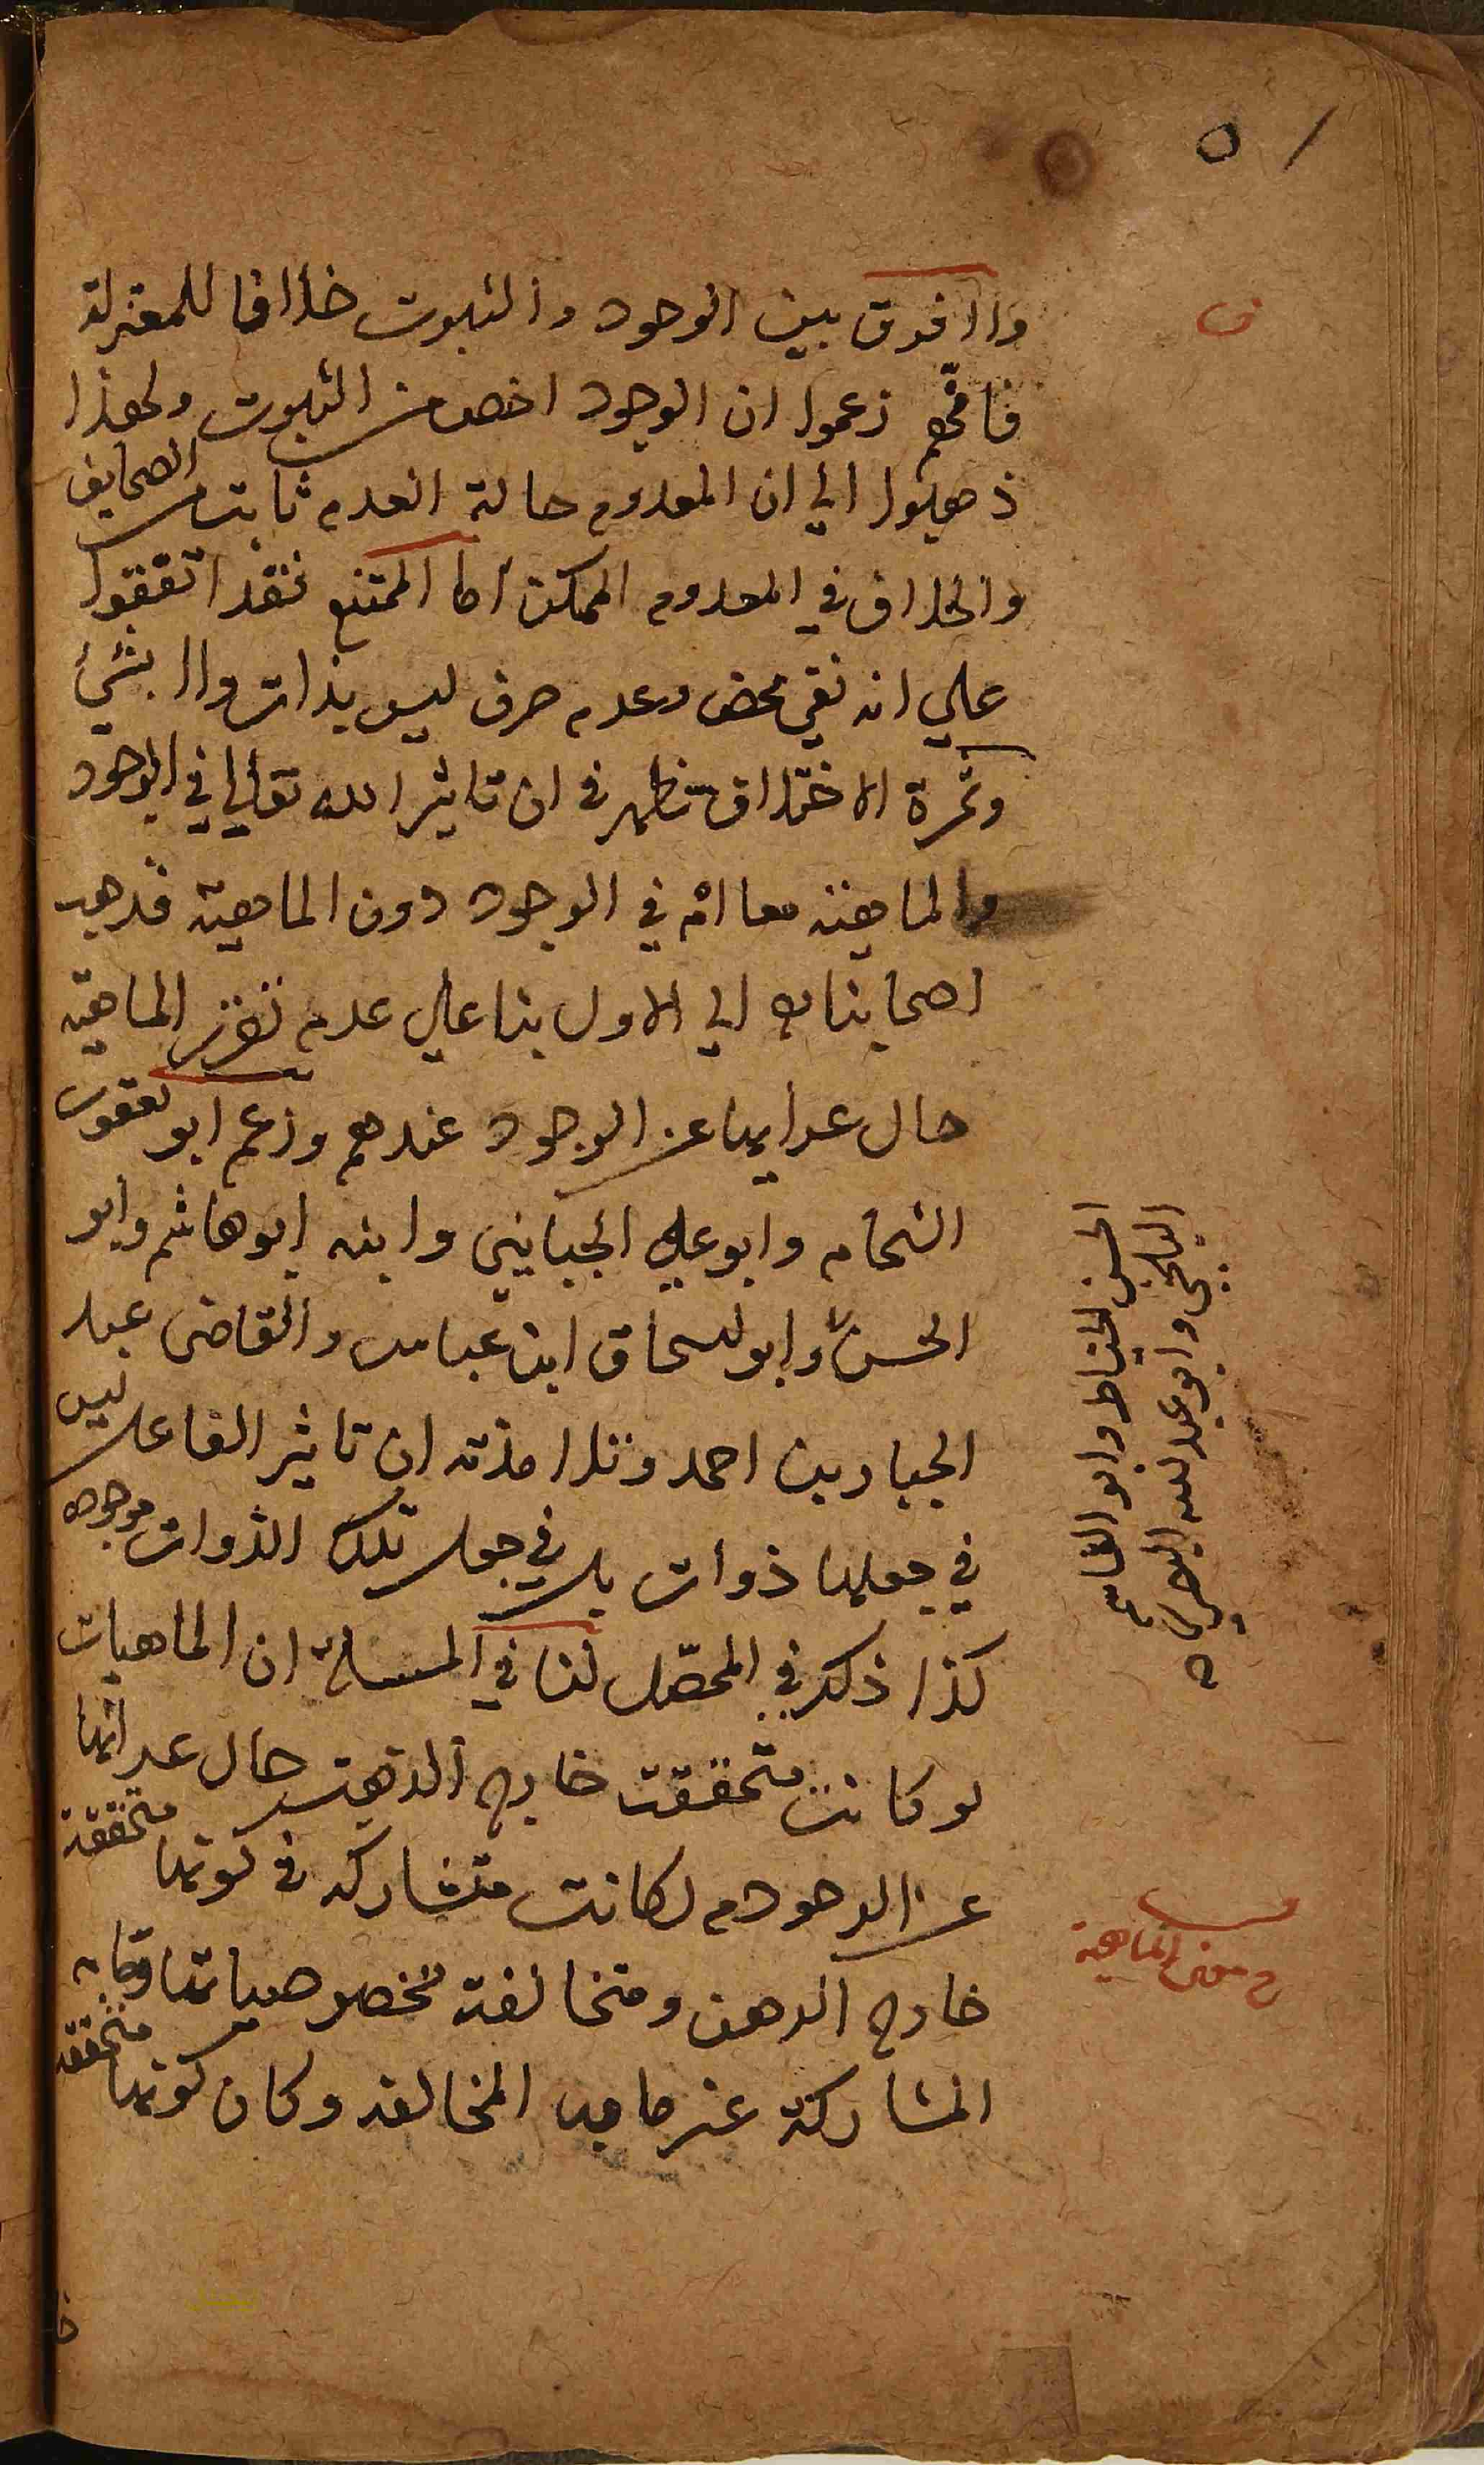 ٥١
ف
ولا فرق بين الوجود والثبوت خلافا للمعتزلة
فانهم زعموا ان الوجود اخص من الثبوت ولهذا
ذهبوا الي ان المعدوم حالة العدم ثابت الصحايف
والخلاف في المعدوم الممكن اما الممتنع فقد اتفقوا
علي انه نفي محض وعدم صرف ليس بذات ولا بشيء
وثمرة الاختلاف تظهر في ان تاثير الله تعالي في الوجود
والماهية معا ام في الوجود دون الماهية فذهب
اصحابنا الي الاول بنا علي عدم تقرر الماهية
حال عرايها عن الوجود عندهم وزعم ابو يعقوب
الشحام وابو علي الجبايني وابنه ابو هاشم وابو
الحسن وابو اسحاق ابن عباس والقاضي عبد
الجبار بن احمد وتلامذته ان تاثير الفاعل ليس
في جعلها ذوات بل في جعل تلك الذوات موجوده
كذا ذكر في المحصل لنا في المسلة ان الماهيات
لو كانت متحققت خارج الذهن حال عرايها
عن الوجود لكانت متشاركه في كونها متحققة
خارج الذهن ومتخالفة بخصوصياتها وما به
المشاركة غير ما به المخالفة وكان كونها متحققه
الحسن الخياط وابو القاسم
البلخي وابو عبد الله البصري
معنى الماهية